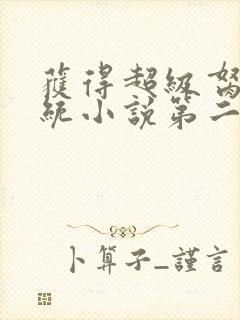 獲得超級
統小說第二
卜算子_謹言